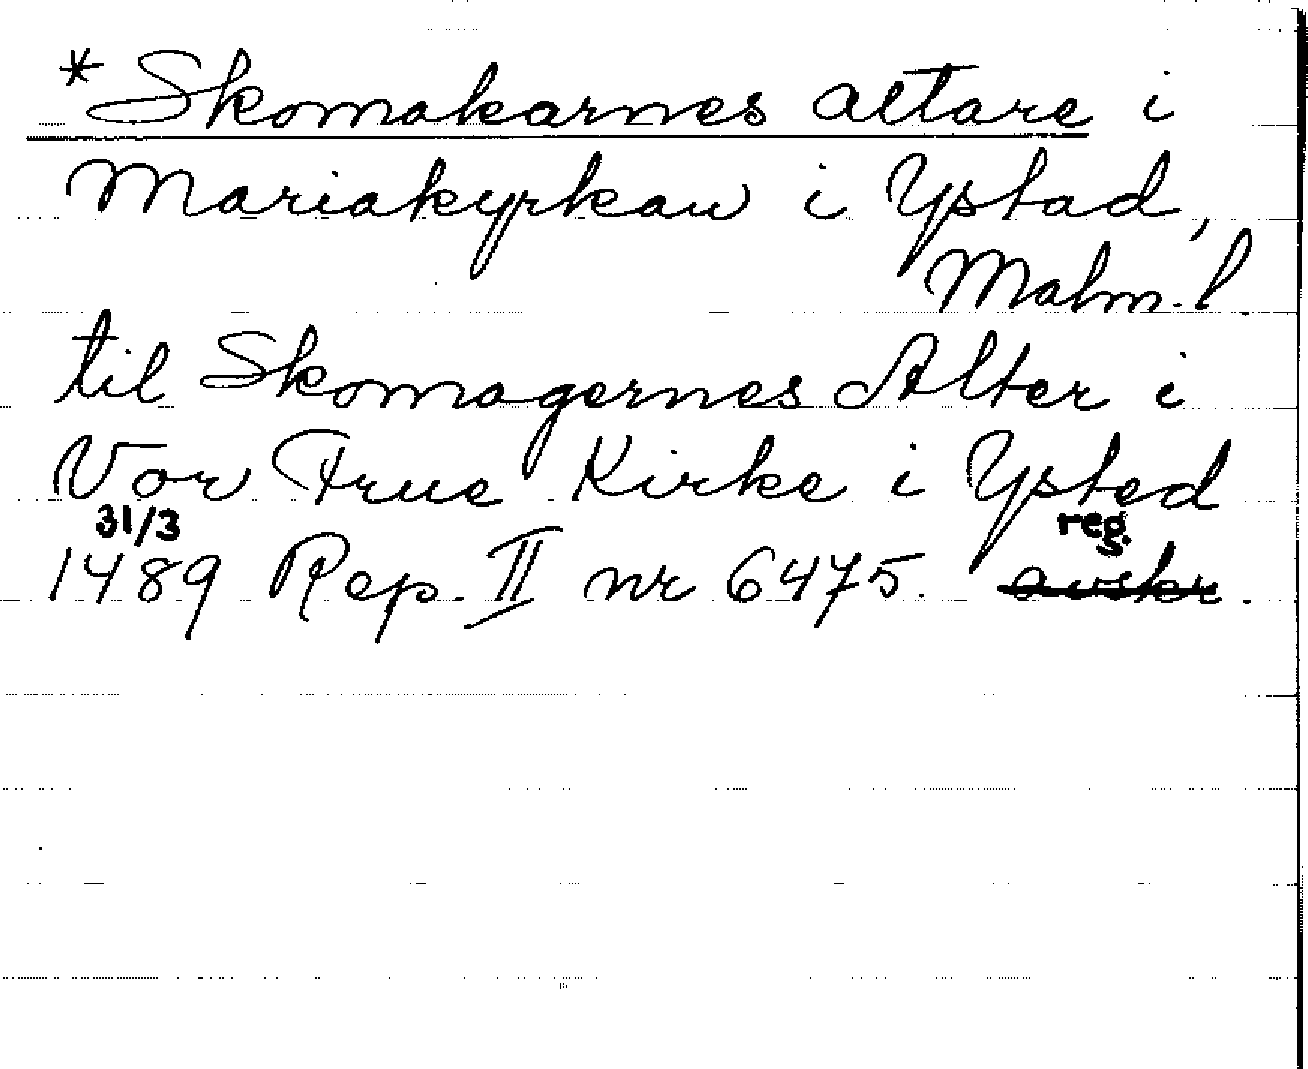 *Skomakarnes altare i
Mariakyrkan i Ystad,
Malm. l.
til Skomagernes Alter i
Vor Frue Kirke i Ysted
31/3 reg.
1489 Rep. II nr 6475. avskr.